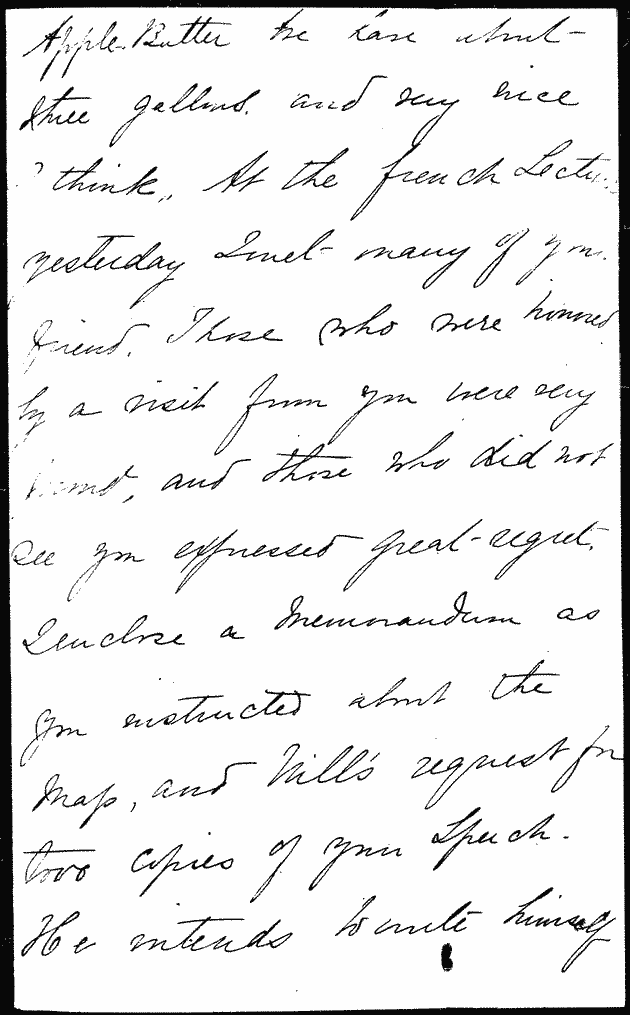 Apple-Butter we have about-
three gallons. and very nice
I think. At the french Lecture
yesterday I met- many of your
friend. Those who were honored
by a visit from you were very
proud, and those who did not
see you expressed great-regret.
I enclose a Memorandum as
you instructed about the
Map, and Will's request for
two copies of your Speech.
He intends to write himself